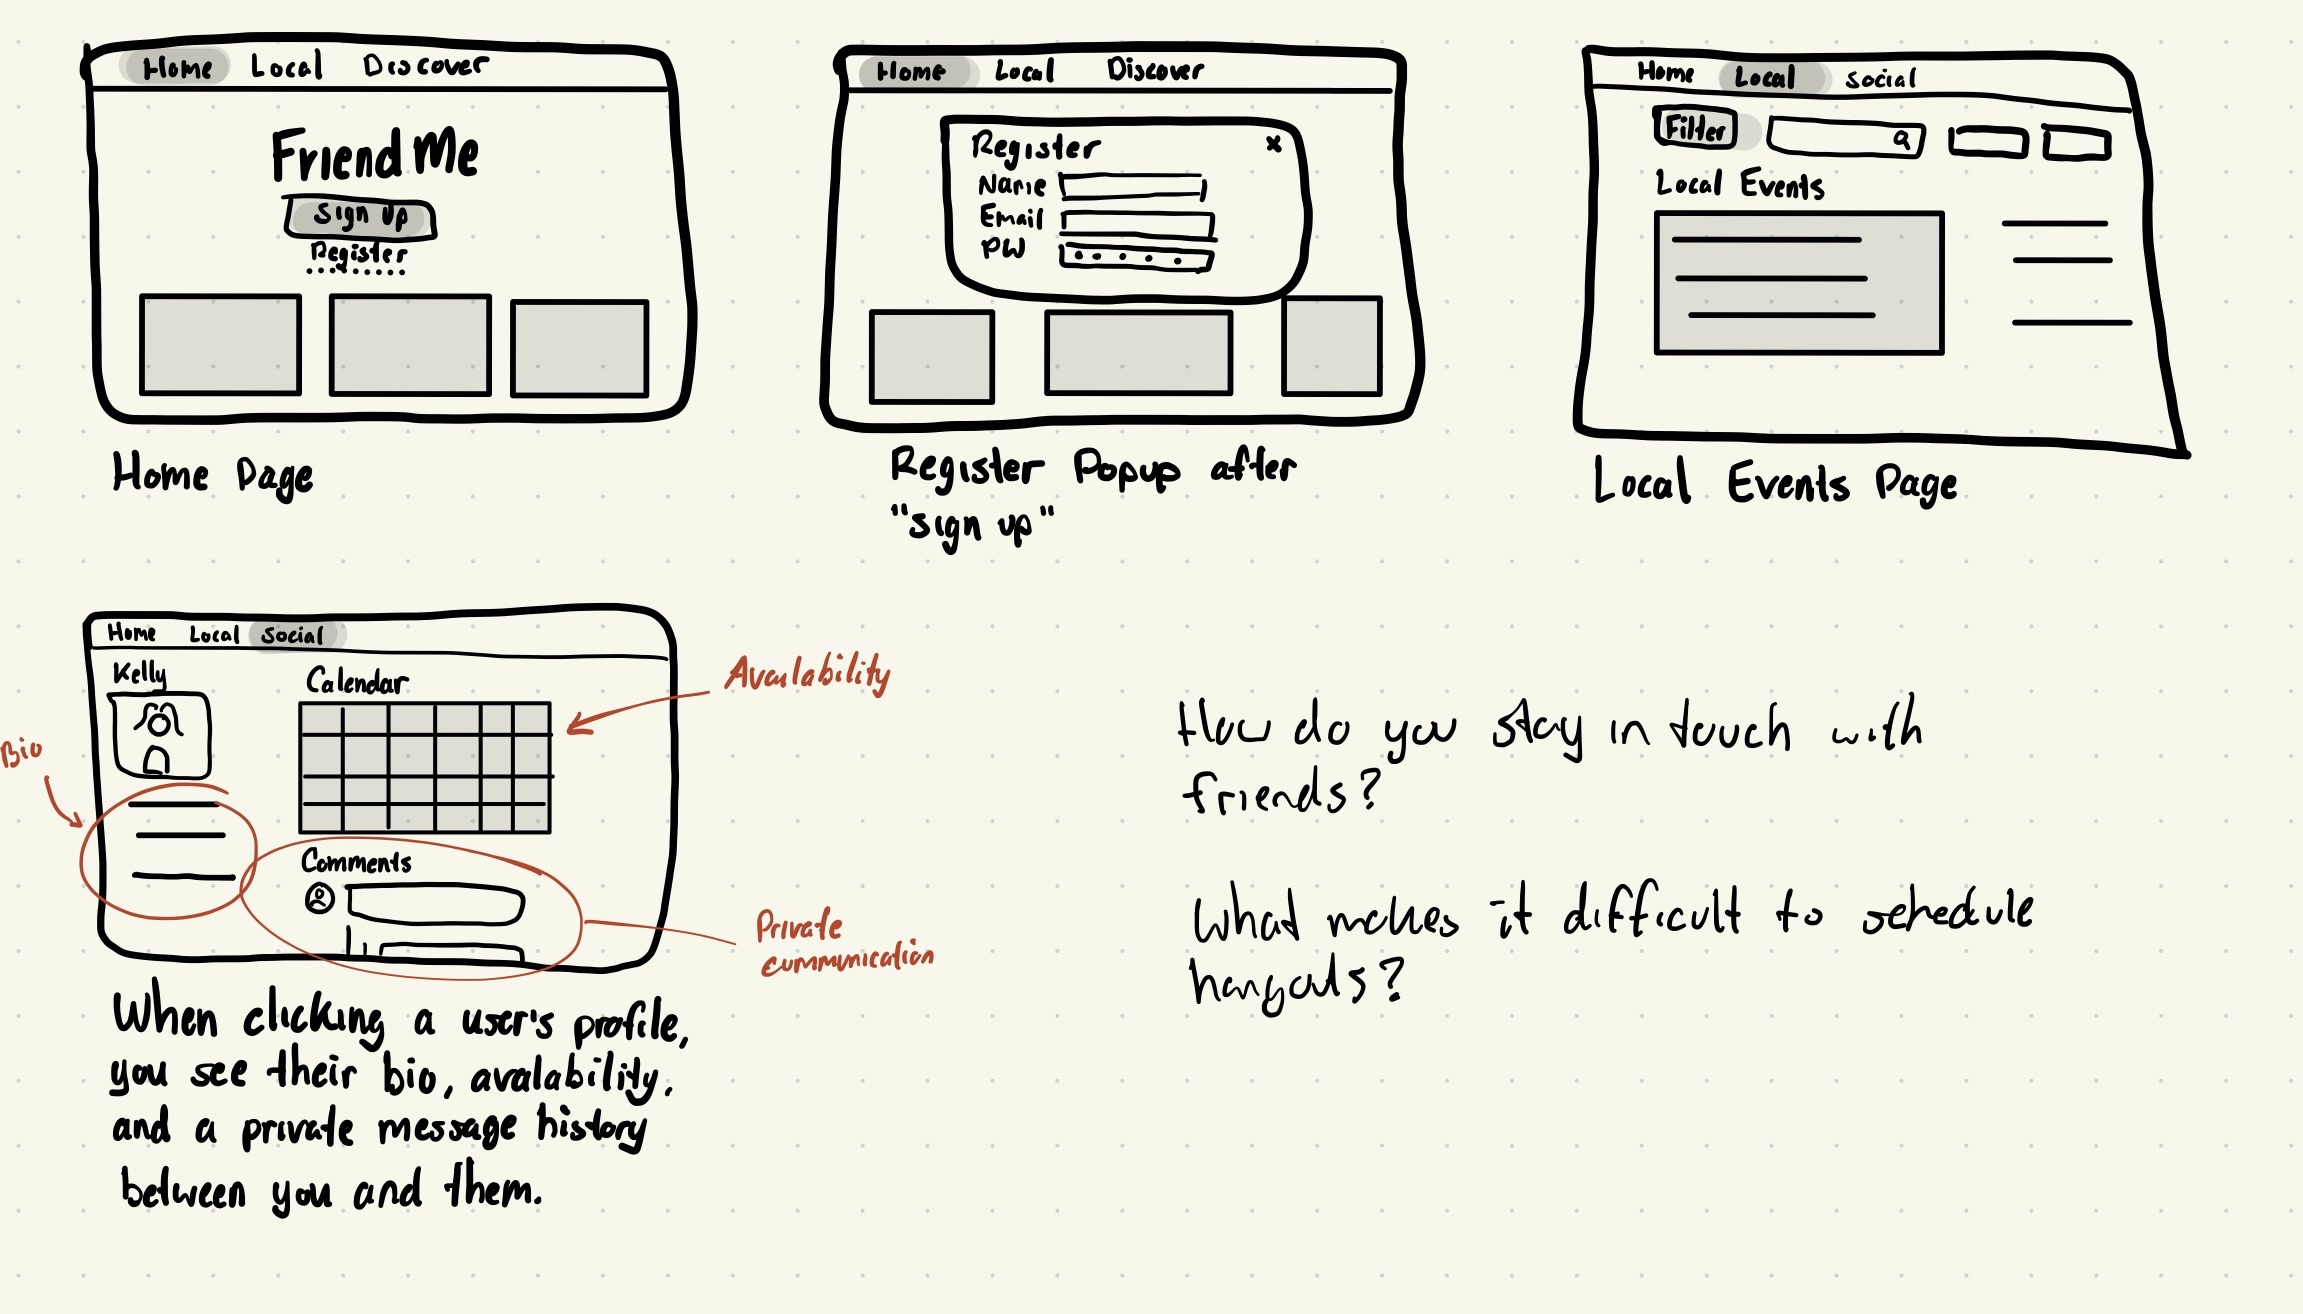 Home Local Discover
Friend Me
Sign Up
Register
Home Page
Home Local Discover
Register x
Name
Email
PW
Register Popup after
"sign up"
Home Local Social
Filter
Local Events
Local Events Page
Home Local Social
Kelly
Calendar
Availability
Bio
Comments
Private
communication
When clicking a user's profile,
you see their bio, avalability,
and a private message history
between you and them.
How do you stay in touch with
friends?
What makes it difficult to schedule
hangouts?